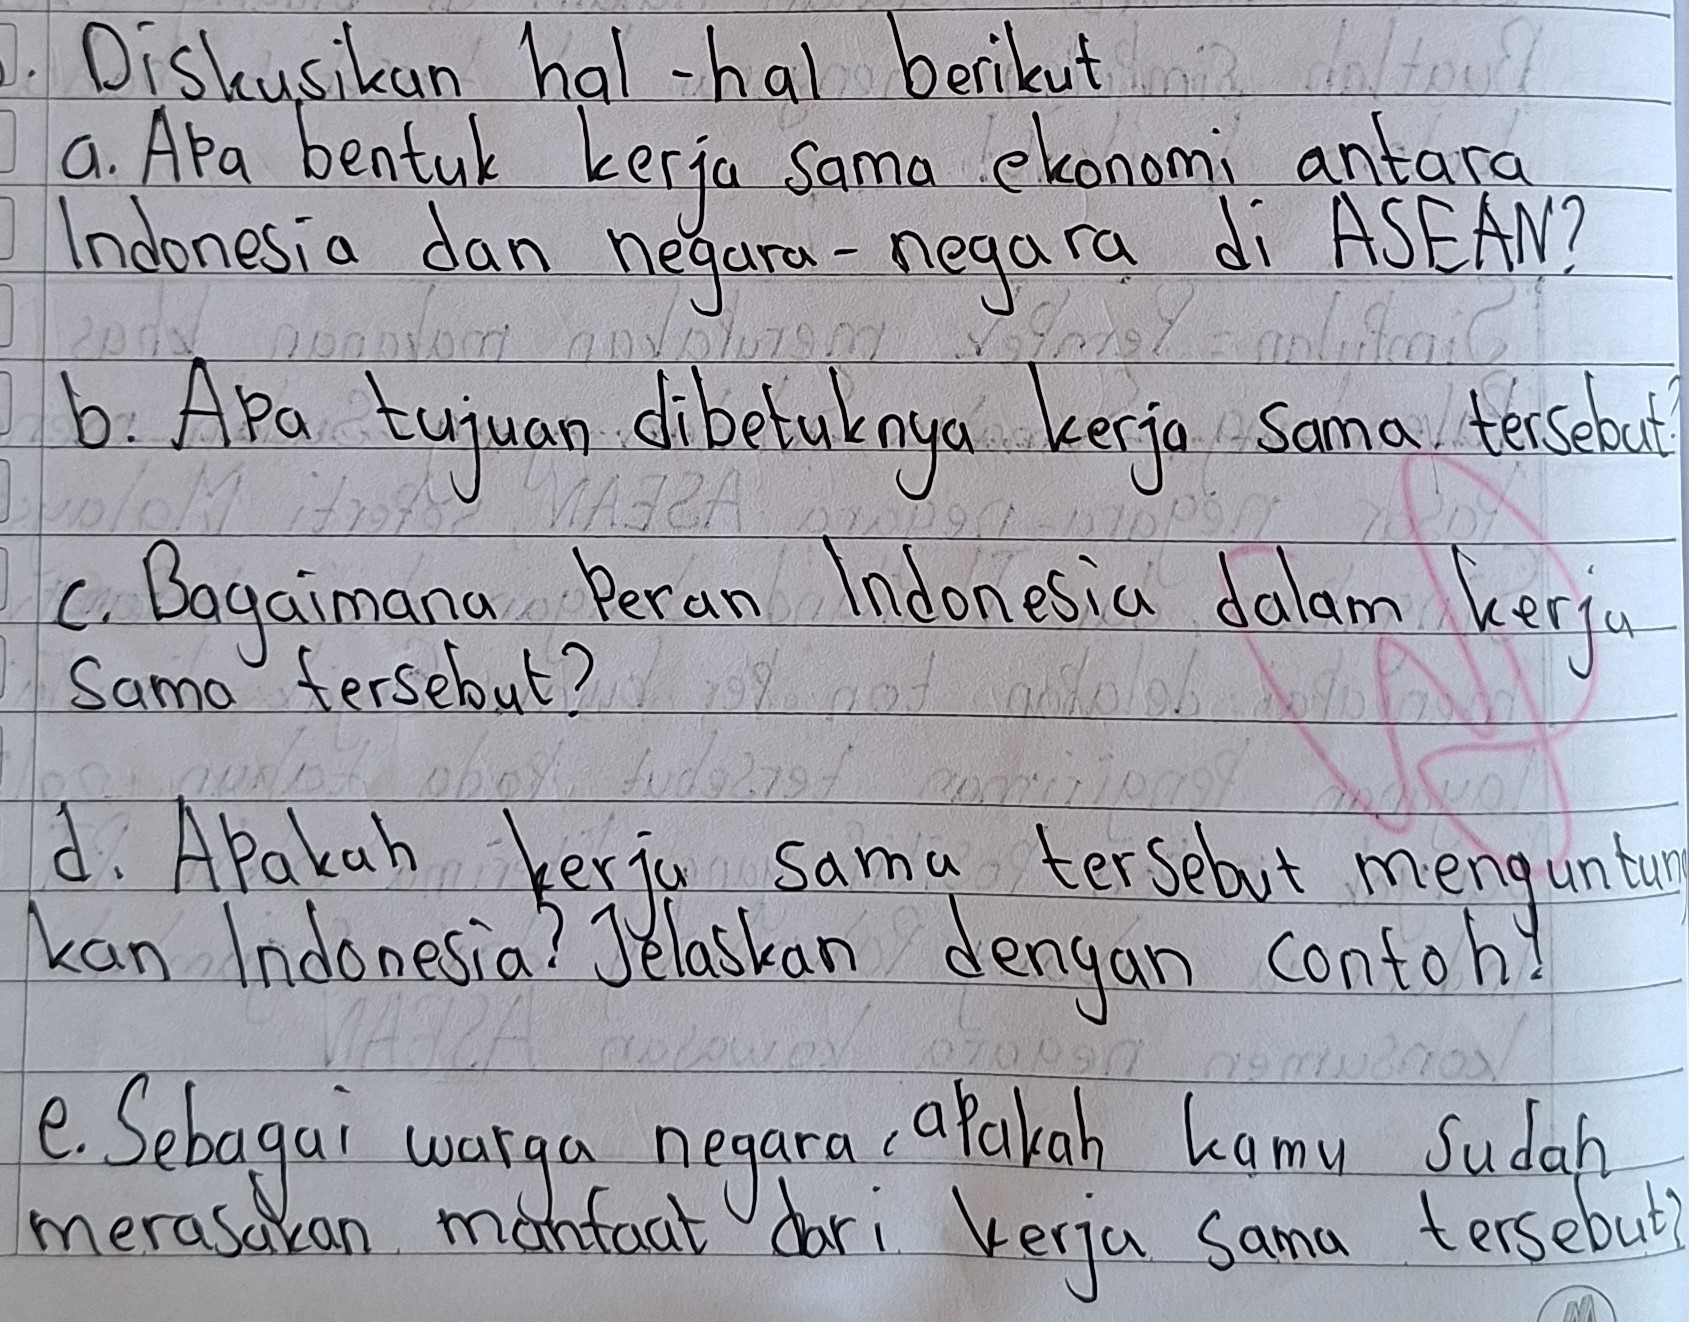 Diskusikan hal-hal berikut
a. Apa bentuk kerja sama ekonomi antara
Indonesia dan negara-negara di ASEAN?
b. Apa tujuan dibetuknya kerja sama tersebut?
c. Bagaimana Peran Indonesia dalam kerja
sama tersebut?
d. Apakah kerja sama tersebut menguntung
kan Indonesia? Jelaskan dengan contoh!
e. Sebagai warga negara, apakah kamu sudah
merasakan manfaat dari kerja sama tersebut?